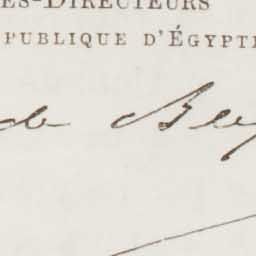 ES-DIRECTEURS
PUBLIQUE D'ÉGYPTE
de